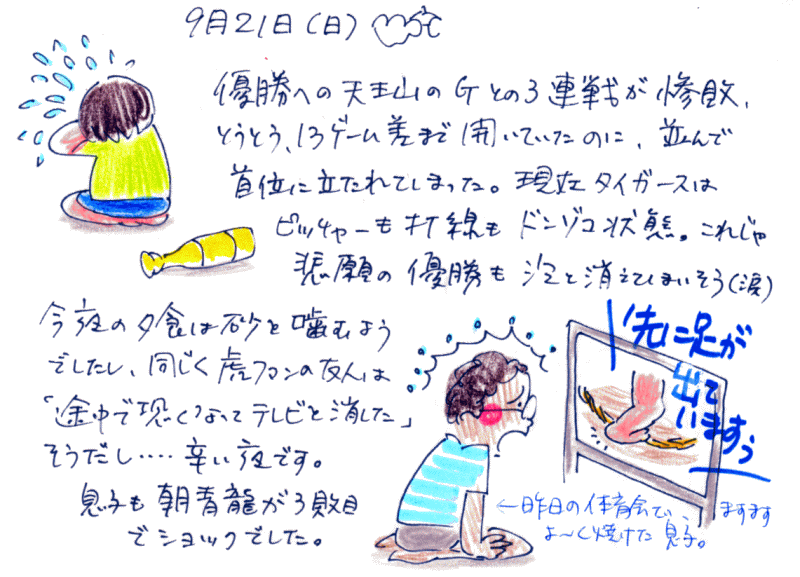 9月21日(日)
優勝への天王山のGとの3連戦が惨敗、
とうとう、13ゲーム差まで開いていたのに、並んで
首位に立たれてしまった。現在タイガースは
ピッチャーも打線もドンゾコ状態。これじゃ
悲願の優勝も泡と消えてしまいそう(涙)
今夜の夕食は砂を噛むよう
でしたし、同じく虎ファンの友人は
「途中で恐くなってテレビを消した」
そうだし‥‥辛い夜です。
息子も朝青龍が3敗目
でショックでした。
先に足が
出て
いますぅ
←昨日の体育会で、ますます
よ〜く焼けた息子。